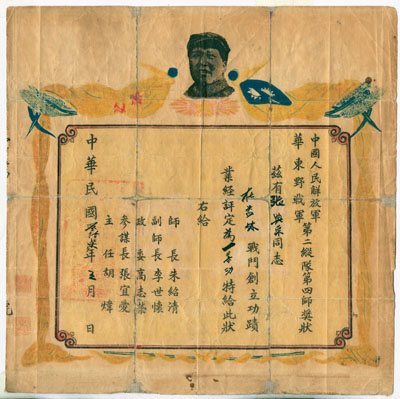 中國人民解放軍
華東野戰軍
第二縱隊第四師獎狀
茲有張 同志
在 戰鬥創立功蹟
業經評定為 功特給此狀
右給
師長朱紹清
副師長李世懷
政委高志榮
參謀長張宜愛
主任胡煒
中華民國 年五月 日